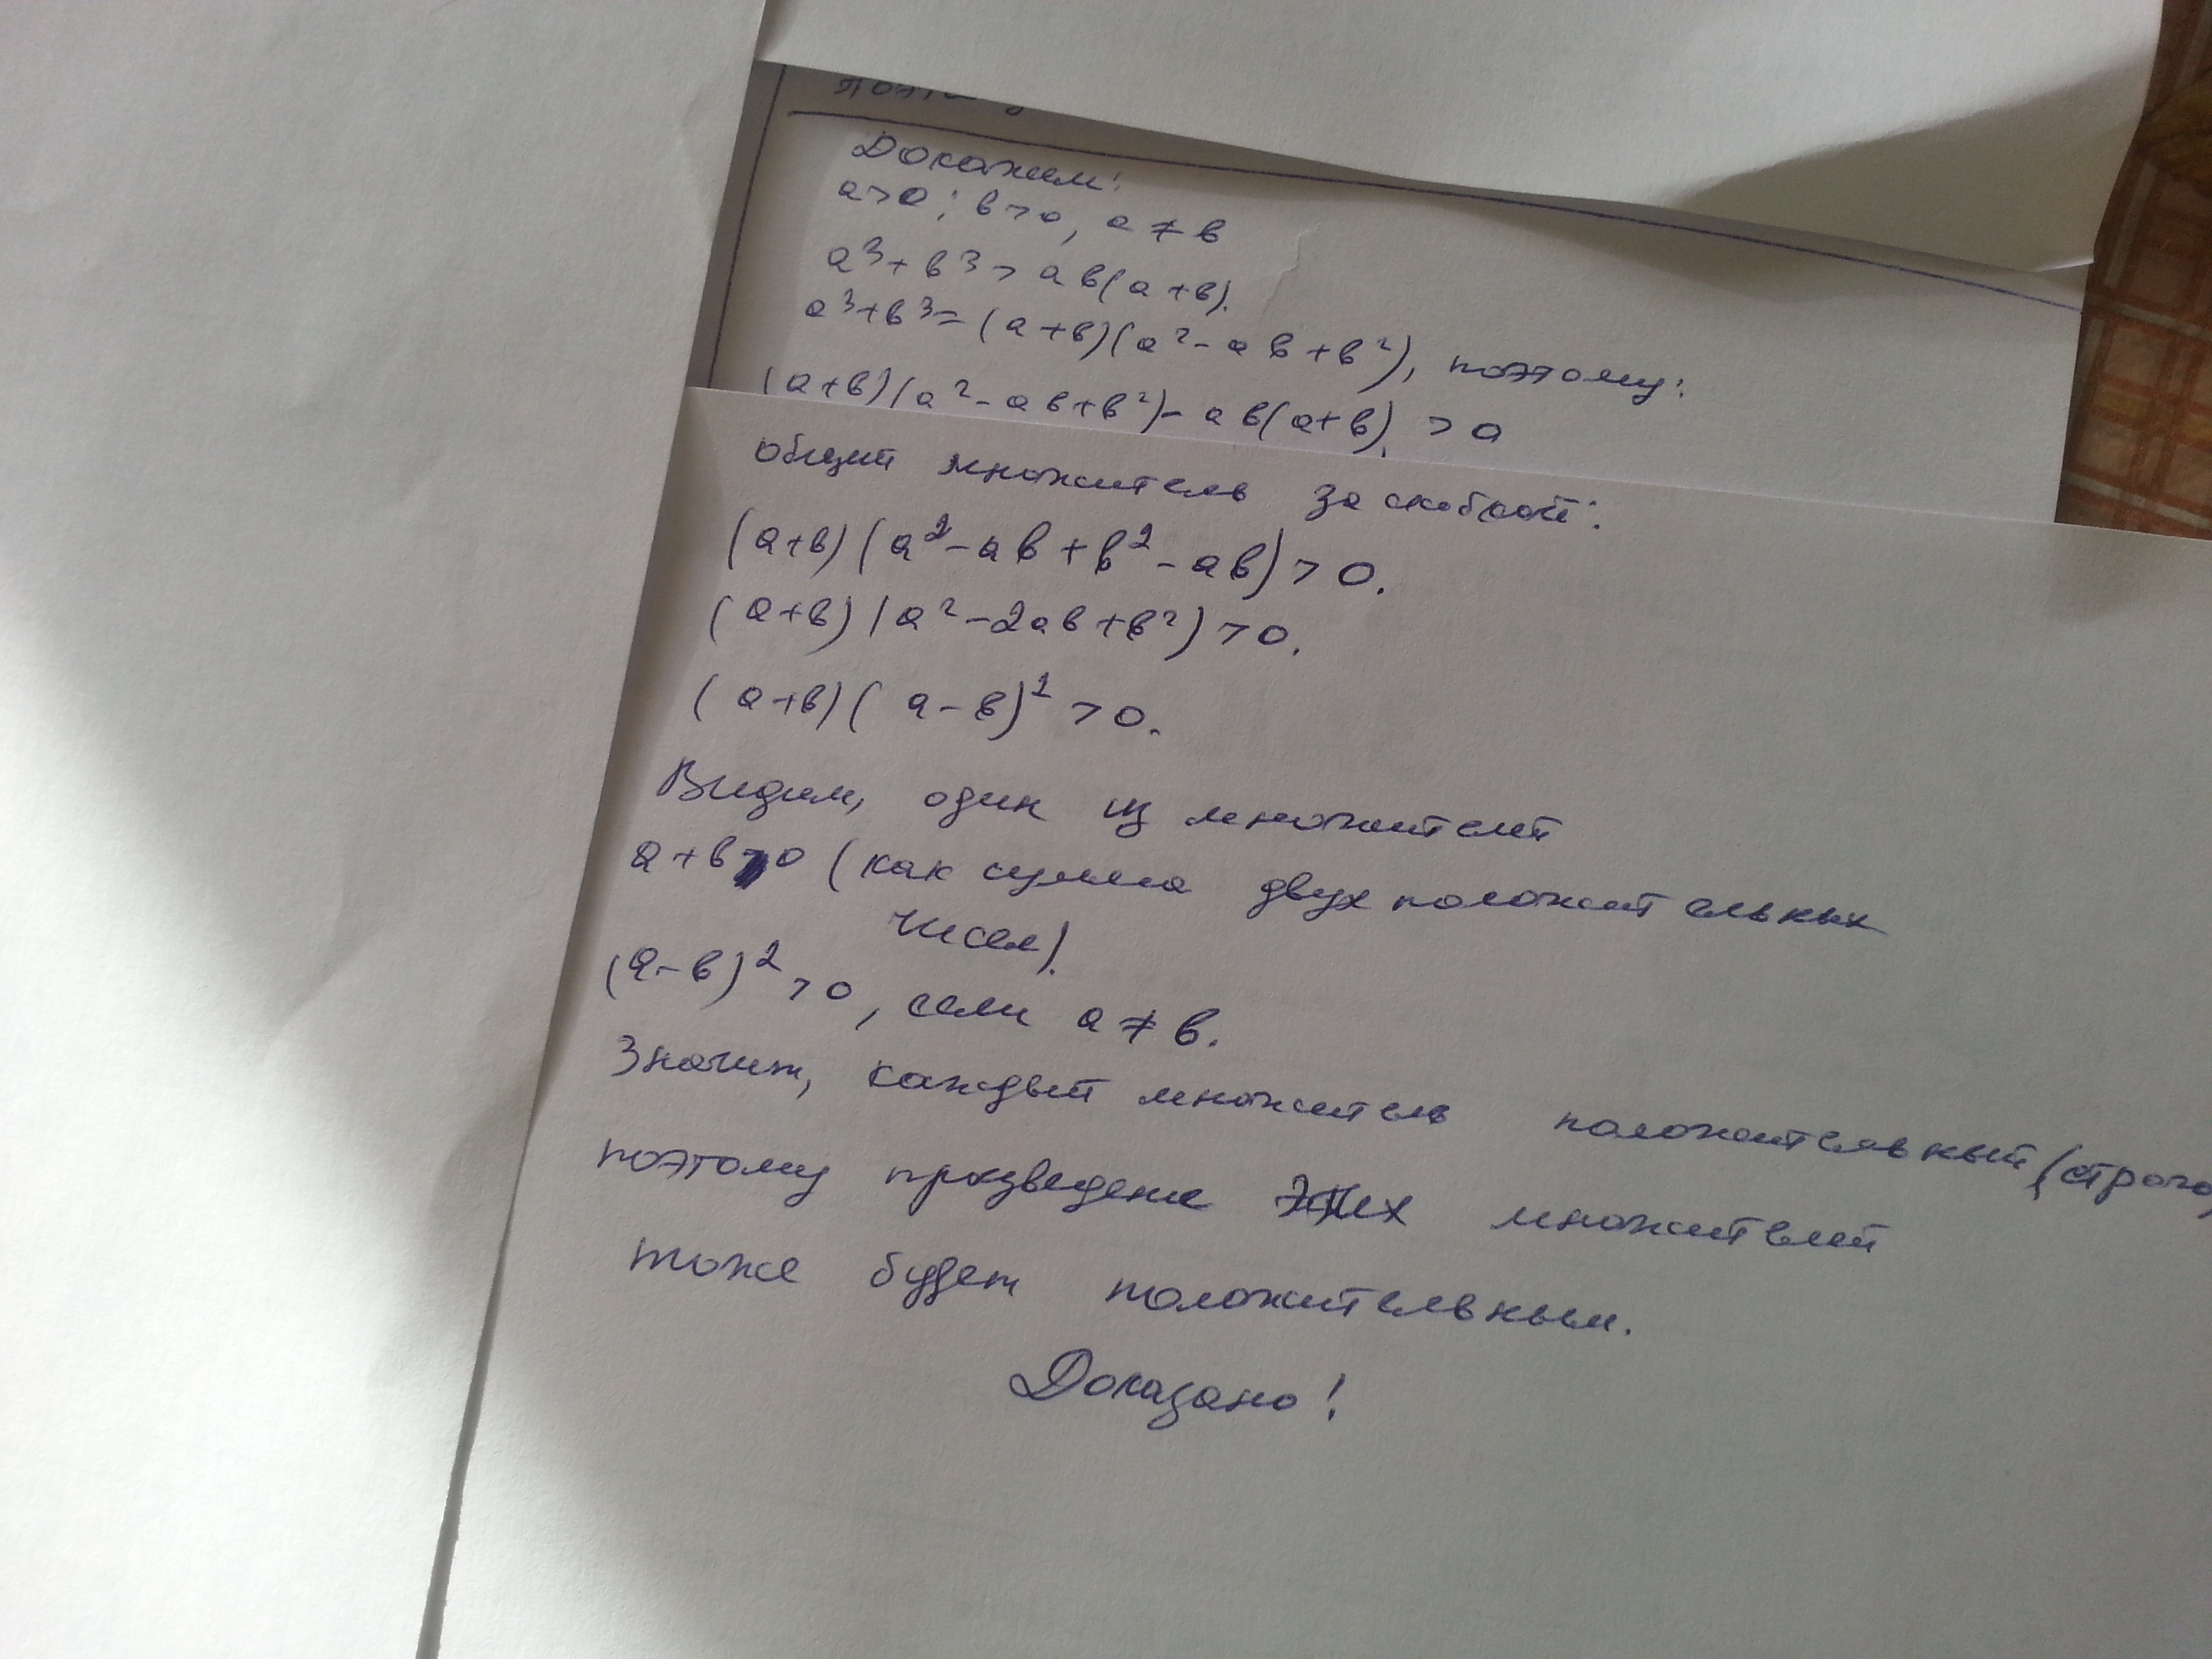 Докажем:
a>0; b>0, a ≠ b
a³+b³ > ab(a+b).
a³+b³=(a+b)(a²-ab+b²), поэтому:
(a+b)(a²-ab+b²)-ab(a+b) > 0
общий множитель за скобкой:
(a+b)(a²-ab+b²-ab)>0.
(a+b)(a²-2ab+b²)>0.
(a+b)(a-b)²>0.
Видим, один из множителей
a+b>0 (как сумма двух положительных
чисел).
(a-b)²>0, если a≠b.
Значит, каждый множитель положительный (строго)
поэтому произведение этих множителей
тоже будет положительным.
Доказано!